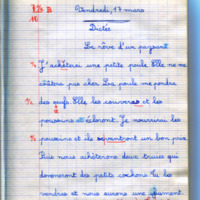 7½ B
10
Vendredi, 17 mars
Dictée
Le rêve d'un paysant
J'achèterai une petite poule. Elle ne me
coûtera pas cher. La poule me pondra
des œufs. Elle les couveras et les
poussins écloront. Je nourrirai les
poussins et ils seront un bon prix.
Puis nous achèterons deux truies qui
donneront des petits cochons. Je les
vendrai et nous aurons une jument